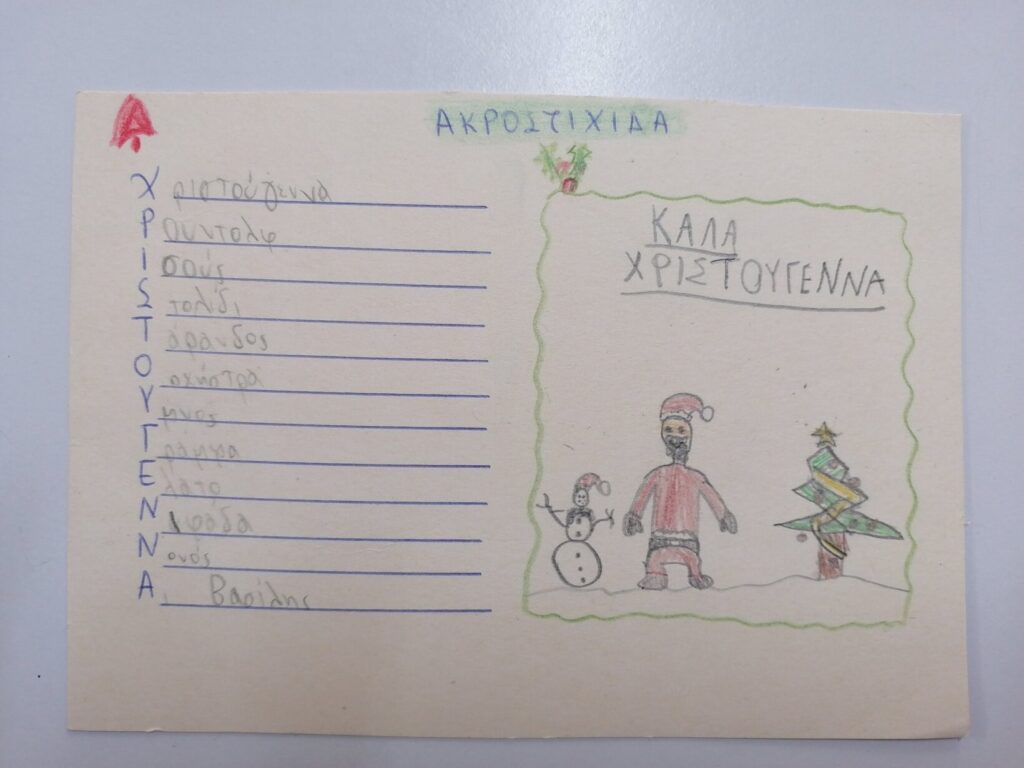 ΑΚΡΟΣΤΙΧΙΔΑ
Χριστούγεννα
Ρουντολφ
Ιησούς
Στολίδι
Τάρανδος
Ορχήστρα
Ύμνος
Γράμμα
Έλατο
Νιφάδα
Ναός
Α. Βασίλης
ΚΑΛΑ
ΧΡΙΣΤΟΥΓΕΝΝΑ